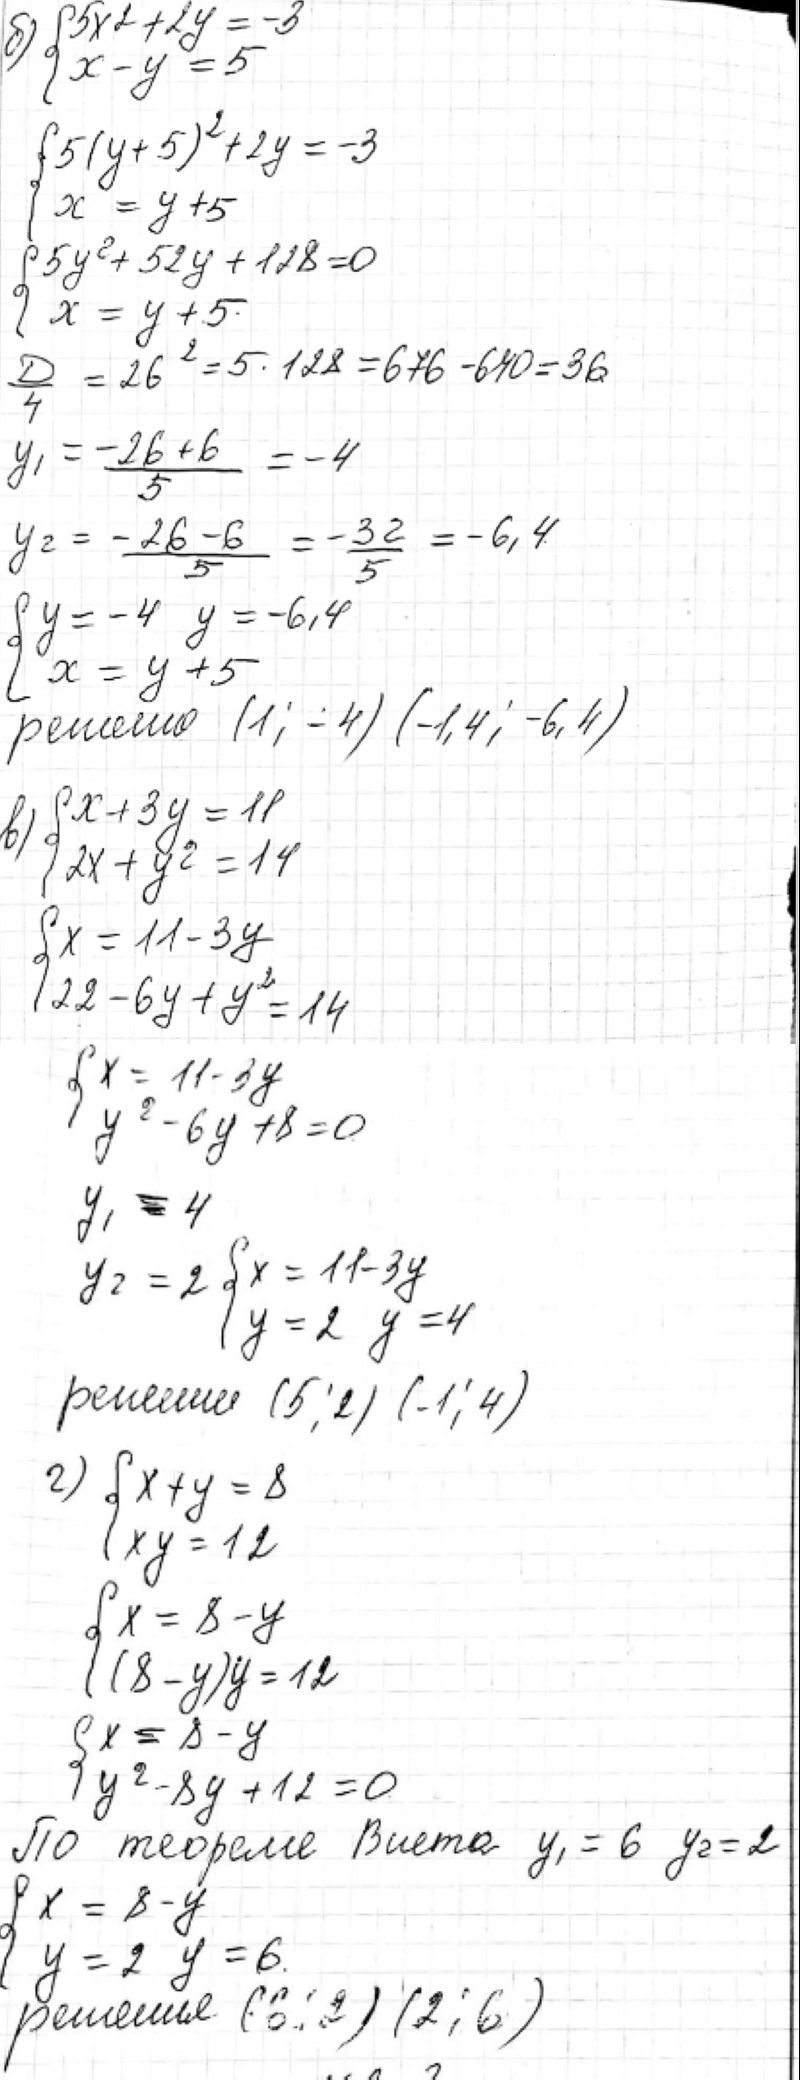 б) { 5x² + 2y = -3
x - y = 5
{ 5(y + 5)² + 2y = -3
x = y + 5
{ 5y² + 52y + 128 = 0
x = y + 5
D/4 = 26² = 5 · 128 = 676 - 640 = 36
y₁ = (-26 + 6)/5 = -4
y₂ = (-26 - 6)/5 = -32/5 = -6,4
{ y = -4 y = -6,4
x = y + 5
решено (1; -4) (-1,4; -6,4)
в) { x + 3y = 11
2x + y² = 14
{ x = 11 - 3y
22 - 6y + y² = 14
{ x = 11 - 3y
y² - 6y + 8 = 0
y₁ = 4
y₂ = 2 { x = 11 - 3y
y = 2 y = 4
решения (5; 2) (-1; 4)
г) { x + y = 8
xy = 12
{ x = 8 - y
(8 - y)y = 12
{ x = 8 - y
y² - 8y + 12 = 0
По теореме Виета y₁ = 6 y₂ = 2
{ x = 8 - y
y = 2 y = 6.
решения (6; 2) (2; 6)